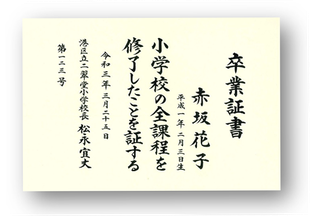 卒業証書
赤坂花子
平成一年二月三日生
小学校の全課程を
修了したことを証する
令和三年三月二十五日
港区立二翠堂小学校長 松永宜丈
第一二三号